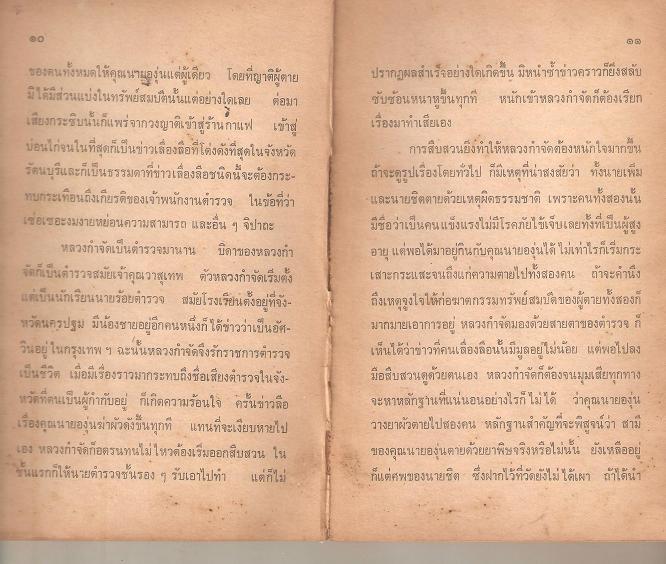 ๑๐
ของตนทั้งหมดให้คุณนายองุ่นแต่ผู้เดียว โดยที่ญาติผู้ตาย
มิได้มีส่วนแบ่งในทรัพย์สมบัตินั้นแต่อย่างใดเลย ต่อมา
เสียงกระซิบนั้นก็แพร่จากวงญาติเข้าสู่ร้านกาแฟ เข้าสู่
บ่อนไก่จนในที่สุดก็เป็นข่าวเลื่องลือที่โด่งดังที่สุดในจังหวัด
รัตนบุรีและก็เป็นธรรมดาที่ข่าวเลื่องลือชนิดนี้จะต้องกระ-
ทบกระเทือนถึงเกียรติของเจ้าพนักงานตำรวจ ในข้อที่ว่า
เซ่อเซอะงมงายหย่อนความสามารถ และอื่น ๆ จิปาถะ
หลวงกำจัดเป็นตำรวจมานาน บิดาของหลวงกำ
จัดก็เป็นตำรวจสมัยเจ้าคุณวาสุเทพ ตัวหลวงกำจัดเริ่มตั้ง
แต่เป็นนักเรียนนายร้อยตำรวจ สมัยโรงเรียนตั้งอยู่ที่จัง-
หวัดนครปฐม มีน้องชายอยู่อีกคนหนึ่งก็ได้ข่าวว่าเป็นอัศ-
วินอยู่ในกรุงเทพ ฯ ฉะนั้นหลวงกำจัดจึงรักราชการตำรวจ
เป็นชีวิต เมื่อมีเรื่องราวมากระทบถึงชื่อเสียงตำรวจในจัง-
หวัดที่ตนเป็นผู้กำกับอยู่ ก็เกิดความร้อนใจ ครั้นข่าวลือ
เรื่องคุณนายองุ่นฆ่าผัวดังขึ้นทุกที แทนที่จะเงียบหายไป
เอง หลวงกำจัดก็อดรนทนไม่ไหวต้องเริ่มออกสืบสวน ใน
ชั้นแรกก็ให้นายตำรวจชั้นรอง ๆ รับเอาไปทำ แต่ก็ไม่
๑๑
ปรากฏผลสำเร็จอย่างใดเกิดขึ้น มิหนำซ้ำข่าวคราวก็ยิ่งสลับ
ซับซ้อนหนาหูขึ้นทุกที หนักเข้าหลวงกำจัดก็ต้องเรียก
เรื่องมาทำเสียเอง
การสืบสวนยิ่งทำให้หลวงกำจัดต้องหนักใจมากขึ้น
ถ้าจะดูรูปเรื่องโดยทั่วไป ก็มีเหตุที่น่าสงสัยว่า ทั้งนายเพิ่ม
และนายชิตตายด้วยเหตุผิดธรรมชาติ เพราะคนทั้งสองนั้น
มีชื่อว่าเป็นคนแข็งแรงไม่มีโรคภัยไข้เจ็บเลยทั้งที่เป็นผู้สูง
อายุ แต่พอได้มาอยู่กินกับคุณนายองุ่นได้ไม่เท่าไรก็เริ่มกระ
เสาะกระแสะจนถึงแก่ความตายไปทั้งสองคน ถ้าจะคำนึง
ถึงเหตุจูงใจให้ก่อฆาตกรรมทรัพย์สมบัติของผู้ตายทั้งสองก็
มากมายเอาการอยู่ หลวงกำจัดมองด้วยสายตาของตำรวจ ก็
เห็นได้ว่าข่าวที่คนเลื่องลือนั้นมีมูลอยู่ไม่น้อย แต่พอไปลง
มือสืบสวนดูด้วยตนเอง หลวงกำจัดก็ต้องจนมุมเสียทุกทาง
จะหาหลักฐานที่แน่นอนอย่างไรก็ไม่ได้ ว่าคุณนายองุ่น
วางยาผัวตายไปสองคน หลักฐานสำคัญที่จะพิสูจน์ว่า สามี
ของคุณนายองุ่นตายด้วยยาพิษจริงหรือไม่นั้น ยังเหลืออยู่
ก็แต่ศพของนายชิต ซึ่งฝากไว้ที่วัดยังไม่ได้เผา ถ้าได้นำ